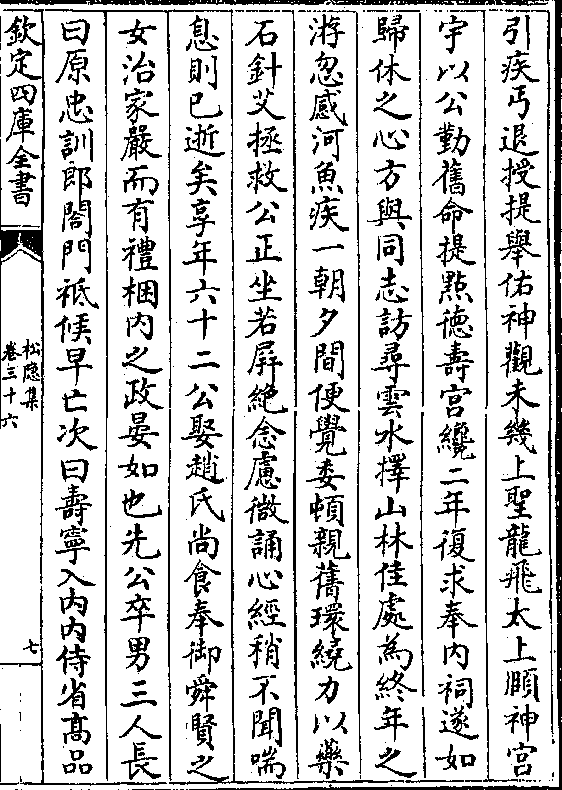 引疾丐退授提舉佑神觀未幾上聖龍飛太上頤神宫
宇以公勤舊命提㸃德壽宫纔二年復求奉内祠遂如
歸休之心方與同志訪尋雲水擇山林佳處為終年之
游忽感河魚疾一朝夕間便覺委頓親舊環繞力以藥
石針艾拯救公正坐若屏絶念慮微誦心經稍不聞喘
息則已逝矣享年六十二公娶趙氏尚食奉御舜賢之
女治家嚴而有禮梱内之政晏如也先公卒男三人長
曰原忠訓郎閤門祗候早亡次曰壽寧入内内侍省髙品
欽定四庫全書
松隠集
卷三十六
七